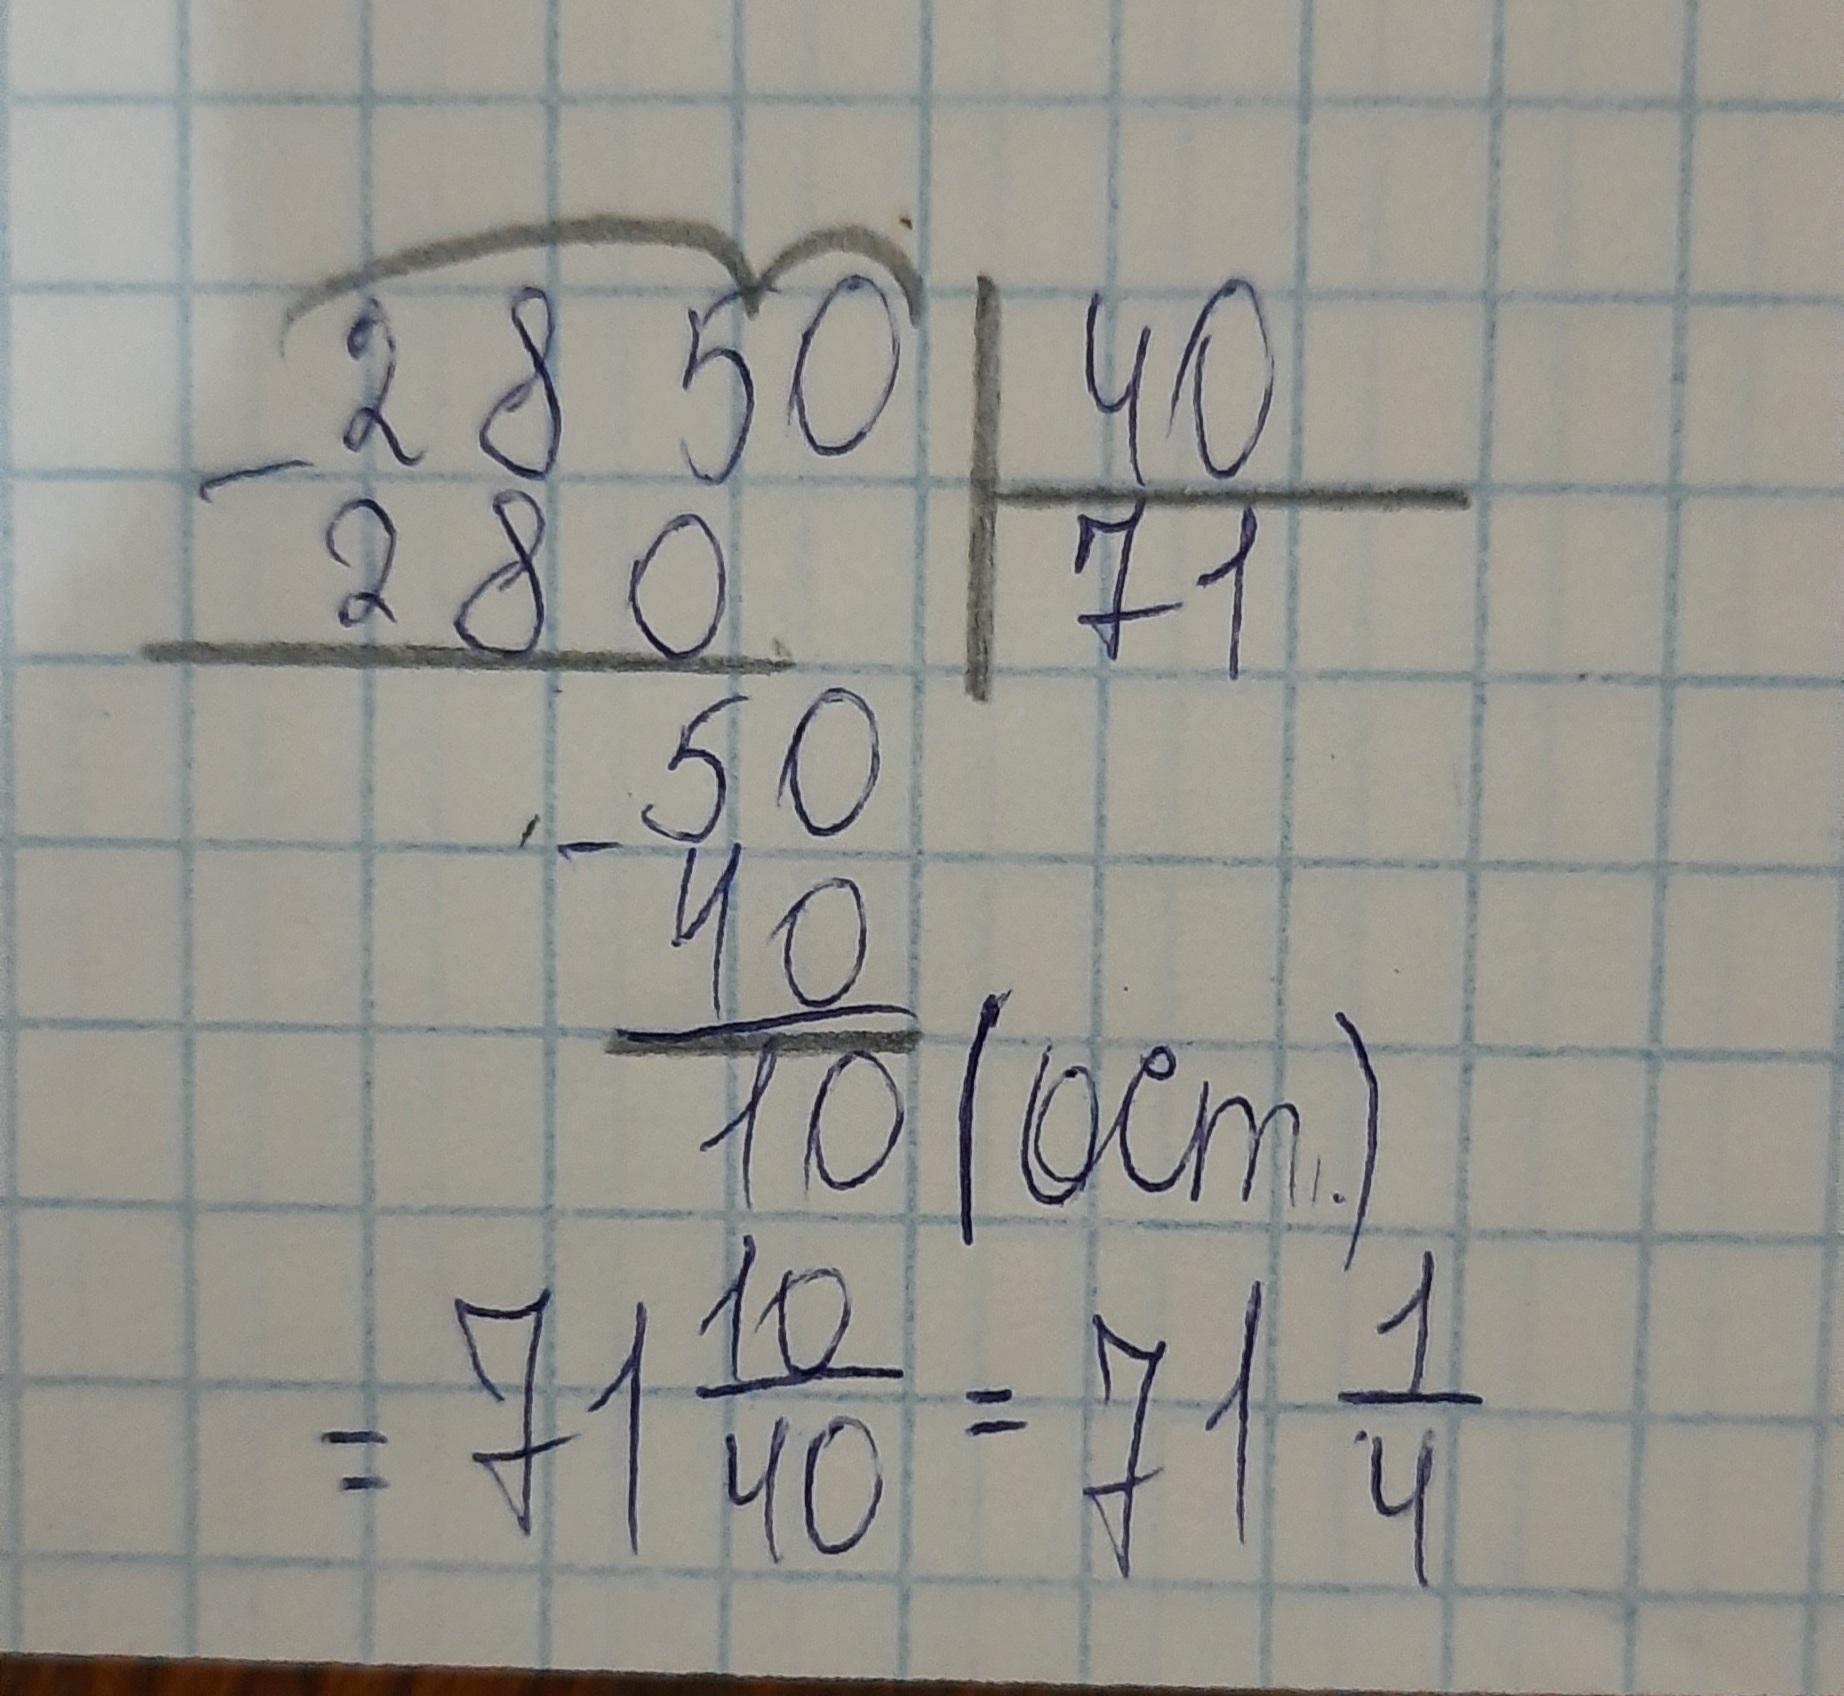 2850 | 40
- 280 | 71
50
- 40
10 (ост.)
= 71 10/40 = 71 1/4